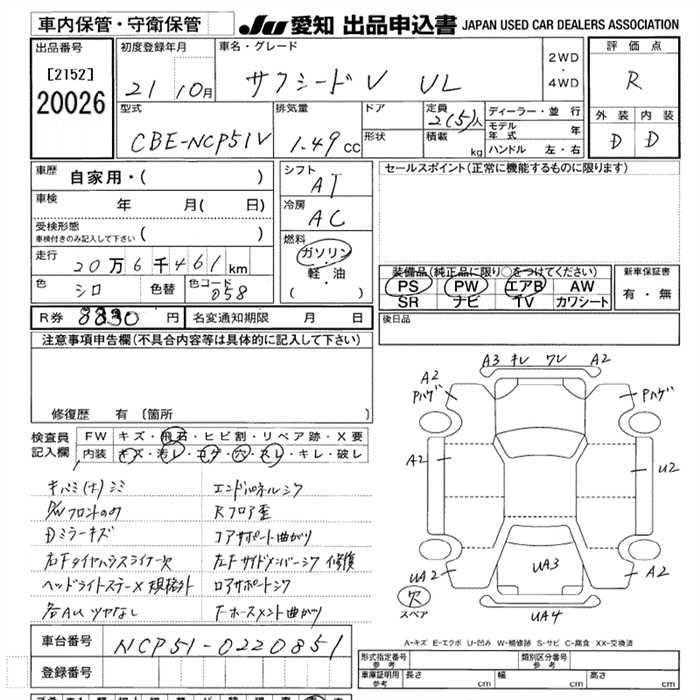 車内保管・守衛保管
JU 愛知 出品申込書 JAPAN USED CAR DEALERS ASSOCIATION
出品番号
[2152]
20026
初度登録年月
21 10月
車名・グレード
サクシードV UL
2WD
・
4WD
評価点
R
外装 内装
D D
型式
CBE-NCP51V
排気量
1.49 cc
ドア
形状
定員
2(5)人
積載
kg
ディーラー・並行
モデル年式 年
ハンドル 左・右
車歴
自家用・( )
車検
年 月( 日)
受検形態
車検付きのみ記入して下さい ( )
走行
20万6千461km
色
シロ
色替
色コード
058
シフト
AT
冷房
AC
燃料
ガソリン
・
軽・油
( )
セールスポイント(正常に機能するものに限ります)
装備品(純正品に限り○をつけてください)
PS PW エアB AW
SR ナビ TV カワシート
新車保証書
有・無
R券 8830 円
名変通知期限 月 日
後日品
注意事項申告欄(不具合内容等は具体的に記入して下さい)
修復歴 有 〔箇所 〕
検査員
記入欄
FW キズ・飛石・ヒビ割・リペア跡・X要
内装 キズ・汚レ・コゲ・穴・スレ・キレ・破レ
キバミ(大)シミ
フロントのり
Dミラーキズ
右Fタイヤハウスライナー欠
ヘッドライトステーX 規格外
各AW ツヤなし
エンドパネルシワ
Rフロア歪
コアサポート曲がり
左Fサイドメンバーシワ 修復
ロアサポートシワ
F-ホースメント曲がり
A3 キレ ワレ A2
A2
Pハゲ
A2
Pハゲ
A2
U2
UA2
UA3
A2
穴
スペア
UA4
A-キズ E-エクボ U-凹み W-補修跡 S-サビ C-腐食 XX-交換済
車台番号
NCP51-0220851
登録番号
形式指定番号
参考
類別区分番号
参考
車庫証明用
参考
長さ cm
幅 cm
高さ cm